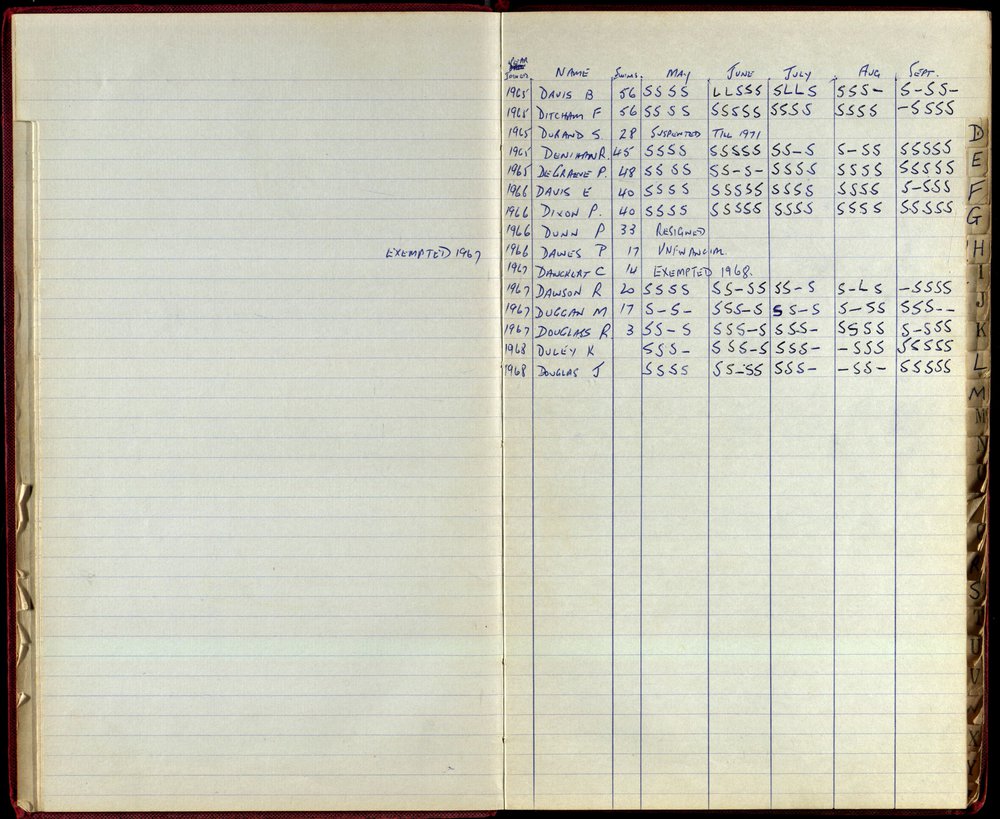 YEAR JOINED NAME SWIMS. MAY JUNE JULY AUG SEPT.
1965 DAVIS B 56 SSSS LLSSS SLLS SSS- S-SS-
1965 DITCHAM F 56 SSSS SSSSS SSSS SSSS -SSSS
1965 DURAND S 28 SUSPENDED TILL 1971
1965 DENIHAN R. 45 SSSS SSSSS SS-S S-SS SSSSS
1965 DEGRAEVE P. 48 SSSS SS-S- SSSS SSSS SSSSS
1966 DAVIS E 40 SSSS SSSSS SSSS SSSS S-SSS
1966 DIXON P. 40 SSSS SSSSS SSSS SSSS SSSSS
1966 DUNN P 33 RESIGNED
EXEMPTED 1967 1966 DAWES P 17 UNFINANCIAL
1967 C 14 EXEMPTED 1968.
1967 DAWSON R 20 SSSS SS-SS SS-S S-LS -SSSS
1967 DUGGAN M 17 S-S- SSS-S SS-S S-SS SSS--
1967 DOUGLASS R 3 SS-S SSS-S SSS- SSSS S-SSS
1968 DULEY K SSS- SSS-S SSS- -SSS SSSSS
1968 DOUGLAS J SSSS SS-SS SSS- -SS- SSSSS
D
E
F
G
H
I
J
K
L
M
Mc
N
O
S
T
U
V
W
X
Y